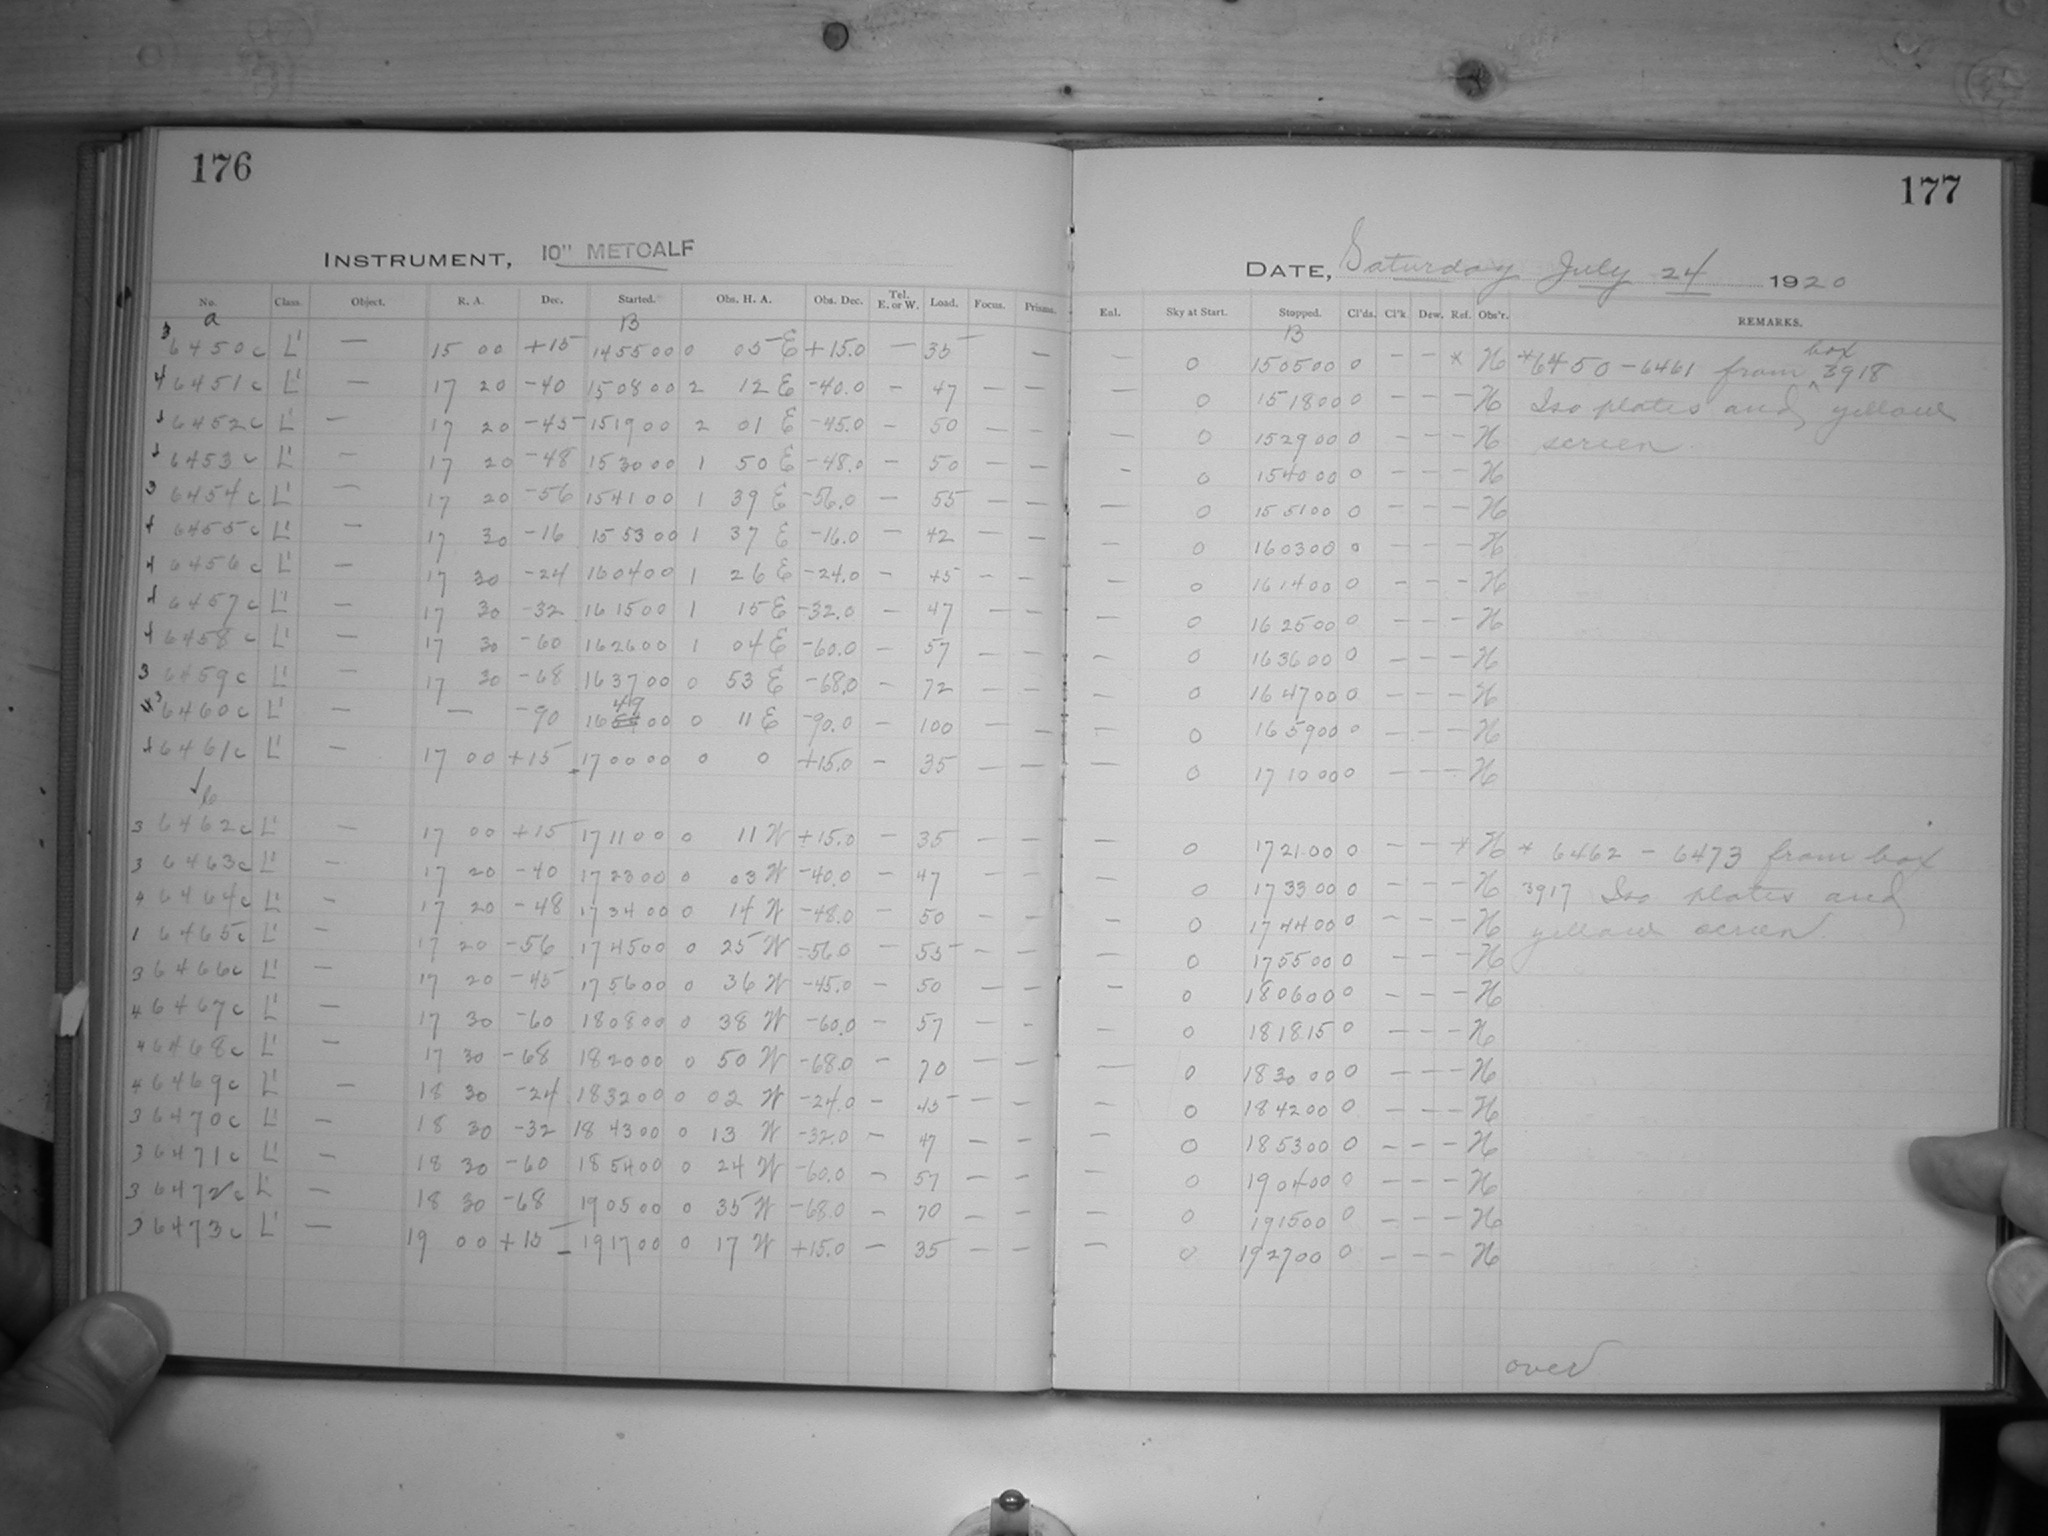 176
INSTRUMENT, 10" METCALF
No. Class. Object. R. A. Dec. Started. Obs. H. A. Obs. Dec. Tel. E. or W. Load. Focus. Prisms.
a B
3 6450c L' — 15 00 +15 145500 0 05 E +15.0 — 35 —
4 6451c L' — 17 20 -40 150800 2 12 E -40.0 - 47 — —
6452c L' — 17 20 -45 151900 2 01 E -45.0 - 50 — —
6453c L' — 17 20 -48 153000 1 50 E -48.0 - 50 — —
3 6454c L' — 17 20 -56 154100 1 39 E -56.0 - 55 — —
6455c L' — 17 30 -16 155300 1 37 E -16.0 - 42 — —
4 6456c L' — 17 30 -24 160400 1 26 E -24.0 - 45 - —
6457c L' — 17 30 -32 161500 1 15 E -32.0 - 47 — —
6458c L' — 17 30 -60 162600 1 04 E -60.0 - 57 — —
3 6459c L' — 17 30 -68 163700 0 53 E -68.0 - 72 — —
3 6460c L' — — -90 164900 0 11 E -90.0 - 100 — —
6461c L' — 17 00 +15 170000 0 0 +15.0 - 35 — —
b
3 6462c L' — 17 00 +15 171100 0 11 W +15.0 - 35 — —
3 6463c L' — 17 20 -40 172300 0 03 W -40.0 - 47 — —
4 6464c L' — 17 20 -48 173400 0 14 W -48.0 - 50 - —
1 6465c L' — 17 20 -56 174500 0 25 W -56.0 - 55 — —
3 6466c L' — 17 20 -45 175600 0 36 W -45.0 - 50 — —
4 6467c L' — 17 30 -60 180800 0 38 W -60.0 - 57 — -
4 6468c L' — 17 30 -68 182000 0 50 W -68.0 - 70 — —
4 6469c L' — 18 30 -24 183200 0 02 W -24.0 - 45 — —
3 6470c L' — 18 30 -32 184300 0 13 W -32.0 - 47 — —
3 6471c L' — 18 30 -60 185400 0 24 W -60.0 - 57 — —
3 6472c L' — 18 30 -68 190500 0 35 W -68.0 - 70 — —
3 6473c L' — 19 00 +15 191700 0 17 W +15.0 - 35 — —
177
DATE, Saturday July 24 1920
Enl. Sky at Start. Stopped. Cl'ds. Cl'k Dew. Ref. Obs'r. REMARKS.
B
— 0 150500 0 - - * H *6450-6461 from box 3918
— 0 151800 0 - - - H Iso plates and yellow
— 0 152900 0 - - - H screen.
- 0 154000 0 - - - H
— 0 155100 0 - - - H
— 0 160300 0 - - - H
— 0 161400 0 - - - H
— 0 162500 0 - - - H
— 0 163600 0 - - - H
— 0 164700 0 - - - H
— 0 165900 0 - - - H
— 0 171000 0 - - - H
— 0 172100 0 - - * H * 6462 - 6473 from box
— 0 173300 0 - - - H 3917 Iso plates and
— 0 174400 0 - - - H yellow screen.
— 0 175500 0 - - - H
— 0 180600 0 - - - H
— 0 181815 0 - - - H
— 0 183000 0 - - - H
— 0 184200 0 - - - H
— 0 185300 0 - - - H
— 0 190400 0 - - - H
— 0 191500 0 - - - H
— 0 192700 0 - - - H
over